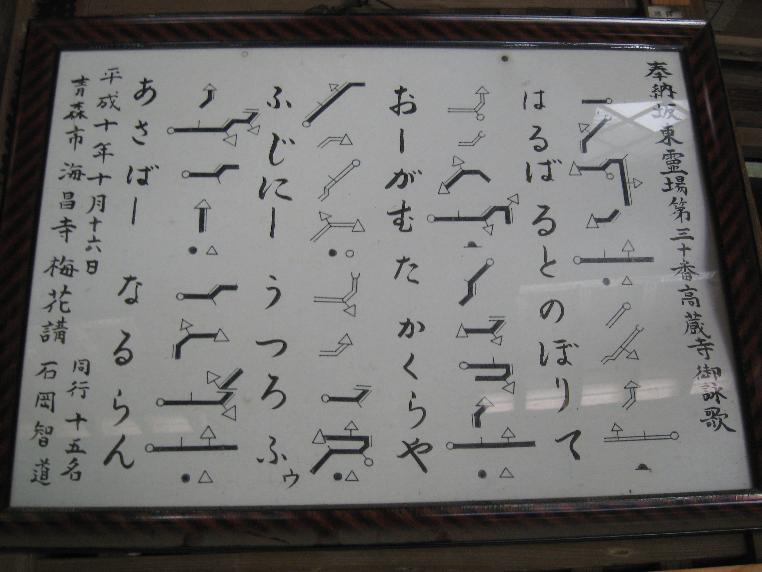 奉納坂東霊場第三十番高蔵寺御詠歌
はるばるとのぼりて
おーがむたかくらや
ふじにーうつろふゥ
あさばーなるらん
平成十年十月十六日
青森市海昌寺梅花講
同行十五名
石岡智道